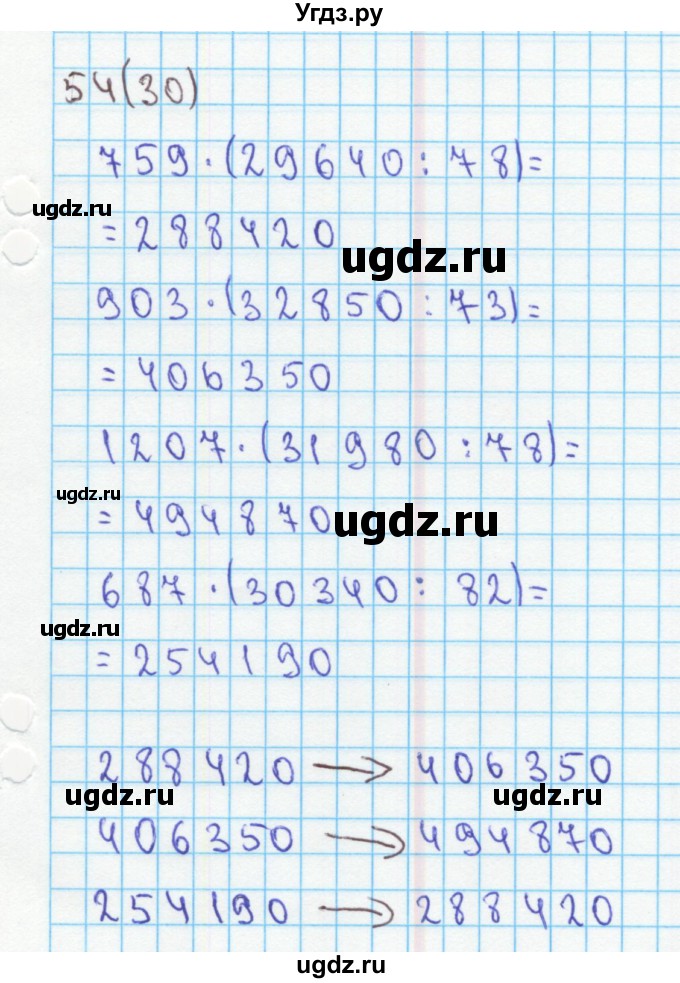 Угдз.ру
54(30)
759·(29640:78)=
ugdz.ru
=288420
ugdz.ru
903·(32850:73)=
=406350
1207·(31980:78)=
ugdz.ru
=494870
ugdz.ru
687·(30340: 82)=
ugdz.ru
=254190
288420 → 406350
ugdz.ru ugdz.ru
406350 → 494870
254190 → 288420
ugdz.ru